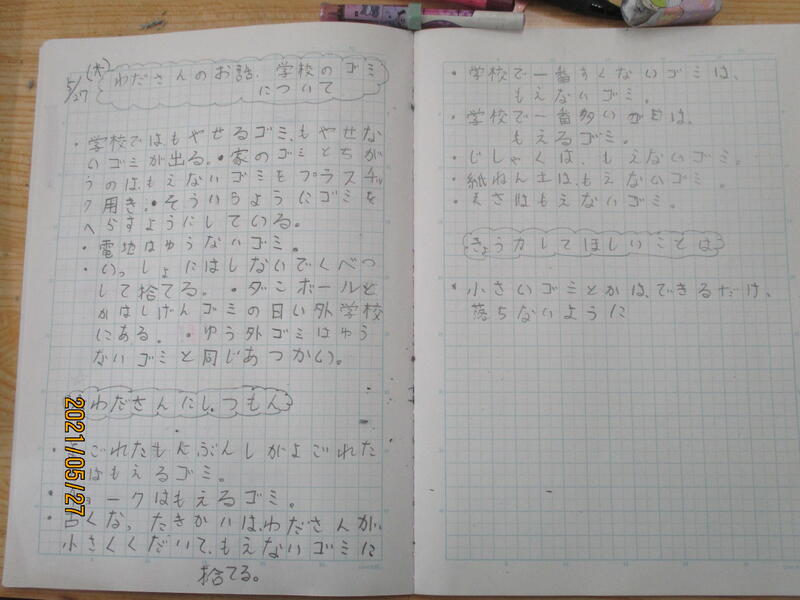 5/27(木)
わださんのお話、学校のゴミ
について
・学校ではもやせるゴミ、もやせな
いゴミが出る。・家のゴミとちが
うのは、もえないゴミをプラスチッ
ク用き。・そういうようにゴミを
へらすようにしている。
・電地はゆうないゴミ。
・いっしょにはしないでくべつ
して捨てる。・ダンボールと
かはしげんゴミの日い外学校
にある。・ゆう外ゴミはゆう
ないゴミと同じあつかい。
わださんにしつもん
ごれたもの、ぶんしがよごれた
はもえるゴミ。
ョークはもえるゴミ。
・古くなったきかいは、わださんが、
小さくくだいて、もえないゴミに
捨てる。
2021/05/27
・学校で一番すくないゴミは、
もえないゴミ。
・学校で一番多いゴミは、
もえるゴミ。
・じしゃくは、もえないゴミ。
・紙ねん土は、もえないゴミ。
・はもえないゴミ。
きょう力してほしいことは
・小さいゴミとかは、できるだけ、
落ちないように